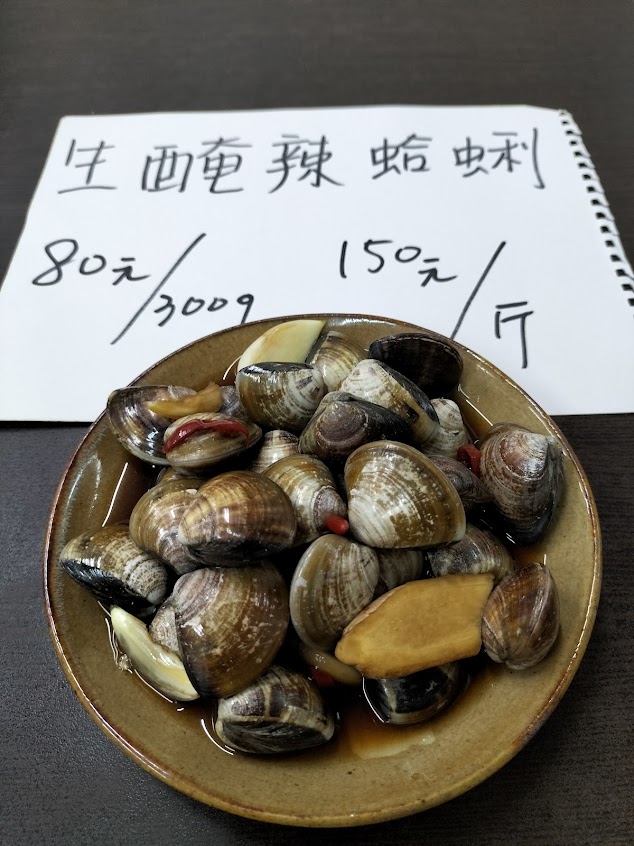 生醃辣蛤蜊
80元/300g 150元/斤